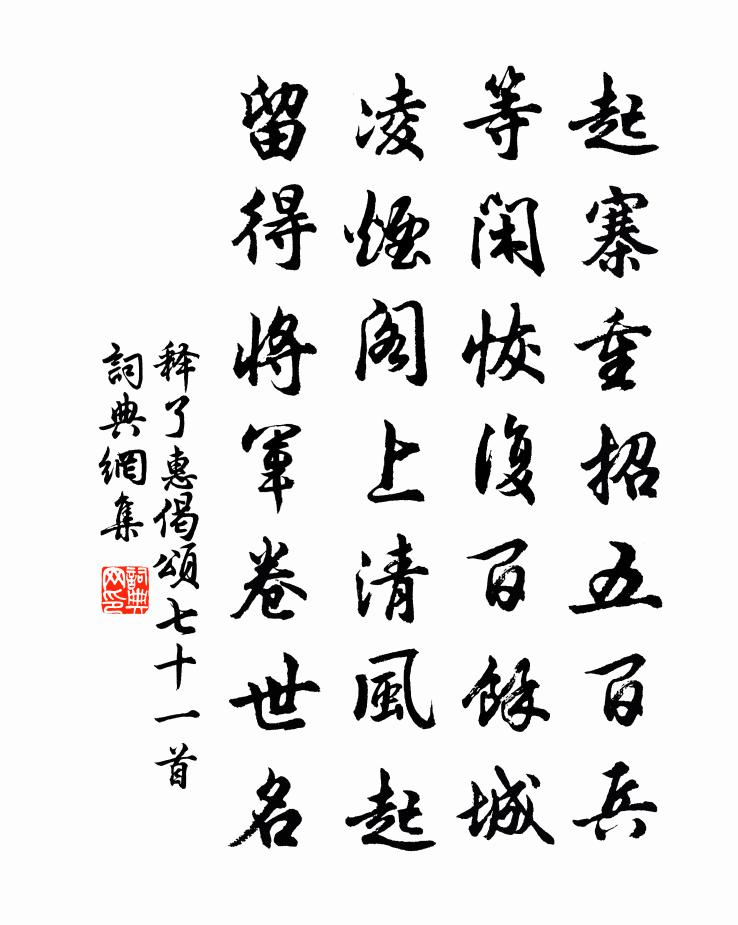 起寨重招五百兵
等閑恢復百餘城
凌煙閣上清風起
留得將軍卷世名
释了惠偈頌七十一首
詞典網集
詞典网印